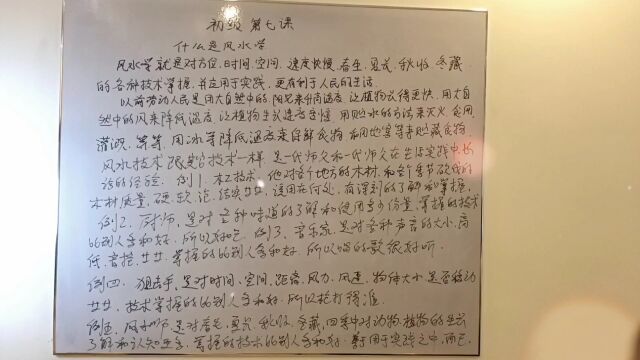 初级 第七课
什么是风水学
风水学就是对方位、时间、空间、速度快慢、春生、夏长、秋收、冬藏
的各种技术掌握，并应用于实践，更有利于人民的生活
以前劳动人民是用大自然中的阳光来升高温度，让植物长得更快，用大自
然中的风来降低温度，让植物生长速度变慢，用贮水的方法来灭火、食用
灌溉、等等，用冰等降低温度来保鲜食物，和用地窖等来贮藏食物
风水技术跟其它技术一样，是一代师父和一代师父在生活实践中总
结的经验。例1、木工技术，他对各个地方的木材，和各个季节砍伐的
木材质量、硬、软、轻、结实等等，该用在何处，有深刻的了解和掌握，
例2、厨师，是对各种味道的了解和使用多少份量，掌握的技术
比别人多和好，所以好吃。例3、音乐家，是对各种声音的大小、高
低、音控、等等，掌握的比别人多和好，所以唱的歌很好听。
例四、狙击手，是对时间、空间、距离、风力、风速、物体大小、是否移动
等等，技术掌握的比别人多和好，所以枪打得准。
例五、风水师，是对春生、夏长、秋收、冬藏，四季中对动物、植物的生长
了解和认知更多，掌握的技术比别人多和好，并用于实践之中，而已。